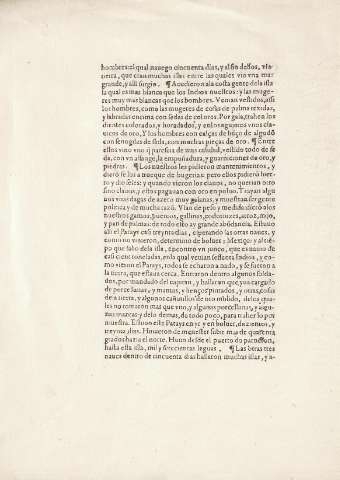 hombres: el qual nauego cincuenta dias, y al fin dellos, vio
tierra, que eran muchas islas entre las quales vio vna muy
grande, y alli surgio. ¶ Acudieron a la costa gente dela isla
la qual es mas blanca que los Indios nuestros: y las muge-
res muy mas blancas que los hombres. Venian vestidos, assi
los hombres, como las mugeres de cosas de palma texidas,
y labradas encima con sedas de colores. Por gala, trahen los
dientes colorados, y horadados, y en los agujeros vnos cla-
uicos de oro, Y los hombres con calças de lienço de algodõ
con senogiles de seda, con muchas pieças de oro. ¶ Entre
ellos vino vno q̃ parescia de mas calidad, vestido todo de se
da, con vn alfange, la empuñadura, y guarniciones de oro, y
piedras. ¶ Los nuestros les pidieron mantenimientos, y
dierõ selos a trueque de bugerias: pero ellos pidierõ hier-
ro y dieseles: y quando vieron los clauos, no querian otro
sino clauos, y estos pagauan con oro en poluo. Trayan algu
nos vnas dagas de azero muy galanas, y muestran ser gente
polida, y de mucha razõ. Vsan de peso y medida: dierõ a los
nuestros gamos, puercos, gallinas, codornizes, arroz, mijo,
y pan de palmas: de todo esto ay grande abũdancia. Estuuo
alli el Patays casi treynta dias, esperando las otras naues, y
como no vinieron, determino de boluer a Mexico: y al tiẽ-
po que salio dela isla, encontro vn junco, que es nauio de
casi cien toneladas, en lo qual venian sesenta Indios, y co-
mo vieron el Patays, todos se echaron a nado, y se fueron a
la tierra, que estaua cerca. Entraron dentro algunos solda-
dos, por mandado del capitan, y hallaron que yua cargado
de porcelanas, y mantas, y lienços pintados, y otras cosas
de a tierra, y algunos cañutillos de oro molido, delos qua-
les no tomaron mas que vno, y algunas porcellanas, y algu-
nas mantas: y delo demas, de todo poco, para traher lo por
muestra. Estuuo este Patays en yr y en boluer, dozientos, y
treynta dias. Houieron de menester subir mas de quarenta
grados hazia el norte. Huuo desde el puerto do partieron,
hasta esta isla, mil y setecientas leguas. ¶ Las otras tres
naues dentro de cincuenta dias hallaron muchas islas, y a-